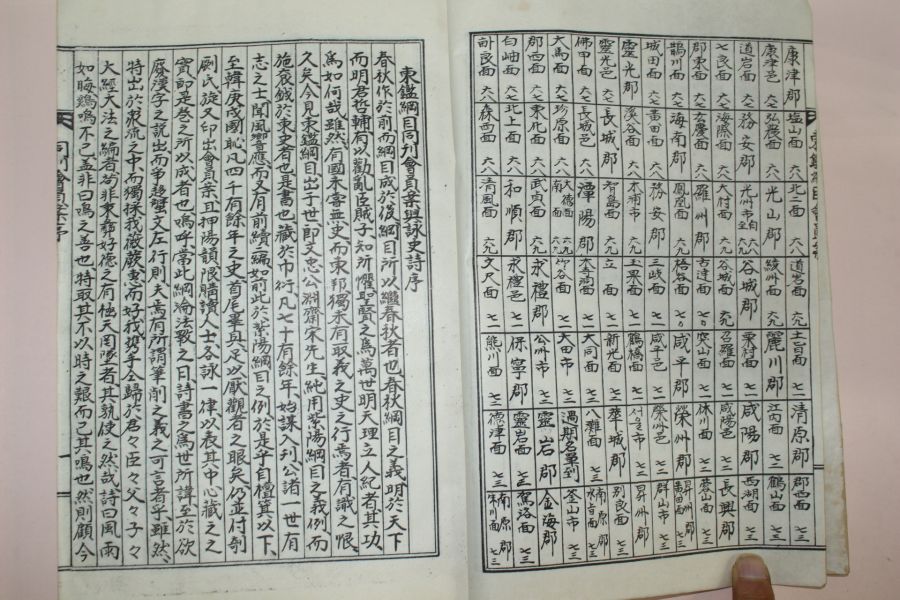 康津郡
康津邑 六七
道岩面 六七
七良面 六七
郡東面 六七
鵲川面 六七
城田面 六七
靈光郡
靈光邑 六七
佛甲面 六七
大馬面 六七
郡西面 六七
白岫面 六七
面 六七
塩山面 六八
弘農面 六八
務安郡
海際面 六八
玄慶面 六八
海南郡
黄田面 六八
溪谷面 六八
長城郡
長城邑 六八
珍原面 六八
東化面 六八
北上面 六八
森西面 六八
北二面 六八
光山郡
光州市
大村面 六九
羅州郡
鳳凰面 六九
務安郡
木浦市 六九
智島面 六九
潭陽郡
大德面 南面 六九
武貞面 六九
和順郡
清風面 六九
道岩面 六九
綾州面 六九
谷城郡
谷城面 七〇
古達面 七〇
梧谷面 七〇
三岐面 七一
立面 七一
木寺洞面 七一
竹谷面 七一
求禮郡
求禮邑 七一
文尺面 七一
土旨面 七一
麗川郡
栗村面 七一
召羅面 七一
突山面 七二
咸平郡
咸平邑 七二
鶴橋面 七二
新光面 七二
大同面 七二
大田市 七二
公州市 七二
保寧郡
熊川面 七二
清原郡
江内面 七二
咸陽郡
咸陽邑 七二
休川面 七二
榮州郡
榮州邑 七二
서울市 七二
華城郡
八灘面 七三
過期名單到
靈岩郡
靈岩面 七三
德津面 七三
郡西面 七三
鶴山面 七三
西湖面 七三
長興郡
蓉山面 七三
昇州郡 黄田面 七三
群山市 七三
昇州郡
別良面 七三
南原郡 水旨面 七三
釜山市 七三
金海郡
駕洛面 七三
南原郡 七三
東鑑綱目同刊會員案與詠史詩序
春秋作於前而綱目成於後綱目所以繼春秋者也春秋綱目之義明於天下
而明君哲輔有以勸亂臣賊子知所懼聖賢之爲萬世明天理立人紀者其功
爲如何哉雖然有國未嘗無史而東邦獨未有取義之史之行焉者有識之恨
久矣今見東鑑綱目出于世卽文忠公淵齋宋先生純用紫陽綱目之義例而
施袞鉞於東史者也是書也藏於巾衍凡七十有餘年始謀入刋公諸一世有
志之士聞風響應而又有前續二編如前此於紫陽綱目之例於是乎自檀箕以下
至韓庚戌國恥凡四千有餘年之史首尾畢具足以厭觀者之眼矣仍並付剞
劂氏旋又印出會員案且押陽韻限購讀人士各詠一律以表其中心藏之之
實卽是卷之所以成者也嗚呼當此綱淪法斁之日詩書之爲世所諱至於欲
廢漢字之說出而爭趍蟹文左行則夫焉有所謂筆削之義之可言者乎雖然
特出於衆流之中而獨採我薇蕨惠而好我携手今歸於君々臣々父々子々
大經大法之編者苟非東彝好德之有極天罔墜者其孰使之然哉詩曰風雨
如晦鷄鳴不已盖非曰鳴之善也特取其不以時之艱而已其鳴也然則顧今